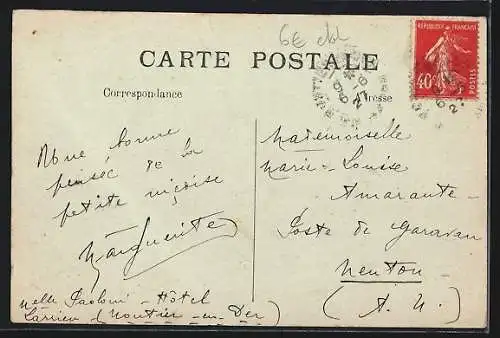 6E
CARTE POSTALE
Correspondance
Adresse
RÉPUBLIQUE FRANÇAISE
POSTES
40c
Une bonne
pensée de la
petite niçoise
Marguerite
Mademoiselle
Marie-Louise
Amarante
Poste de Garavan
Menton
(A. M.)
Melle Paoloni - Hôtel
(Moutier-en-Der)